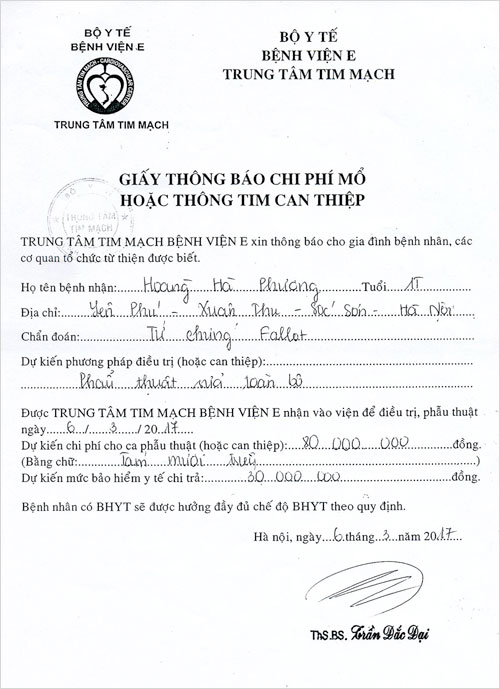 BỘ Y TẾ
BỆNH VIỆN E
TRUNG TÂM TIM MẠCH - CARDIOVASCULAR CENTER
TRUNG TÂM TIM MẠCH
BỘ Y TẾ
BỆNH VIỆN E
TRUNG TÂM TIM MẠCH
GIẤY THÔNG BÁO CHI PHÍ MỔ
HOẶC THÔNG TIM CAN THIỆP
TRUNG TÂM
TIM MẠCH
TRUNG TÂM TIM MẠCH BỆNH VIỆN E xin thông báo cho gia đình bệnh nhân, các
cơ quan tổ chức từ thiện được biết.
Họ tên bệnh nhân: Hoàng Hà Phương Tuổi 1T
Địa chỉ: Yên Phú - Xuân Thu - Sóc Sơn - Hà Nội
Chẩn đoán: Tứ chứng Fallot
Dự kiến phương pháp điều trị (hoặc can thiệp):
Phẫu thuật sửa toàn bộ
Được TRUNG TÂM TIM MẠCH BỆNH VIỆN E nhận vào viện để điều trị, phẫu thuật
ngày 6 / 3 / 2017
Dự kiến chi phí cho ca phẫu thuật (hoặc can thiệp): 80 000 000 đồng.
(Bằng chữ: Tám mươi triệu )
Dự kiến mức bảo hiểm y tế chi trả: 30 000 000 đồng.
Bệnh nhân có BHYT sẽ được hưởng đầy đủ chế độ BHYT theo quy định.
Hà nội, ngày 6 tháng 3 năm 2017
ThS.BS. Trần Đắc Đại